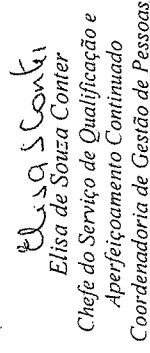 Elisa S Conter
Elisa de Souza Conter
Chefe do Serviço de Qualificação e
Aperfeiçoamento Continuado
Coordenadoria de Gestão de Pessoas